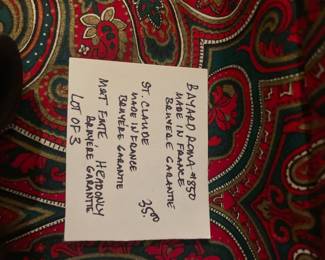 BAYARD ROMA #850
MADE IN FRANCE
BRUYERE GARANTIE
ST. CLAUDE
MADE IN FRANCE
BRUYERE GARANTIE
35.00
HEADONLY
BRUYÈRE GARANTIE
LOT OF 3